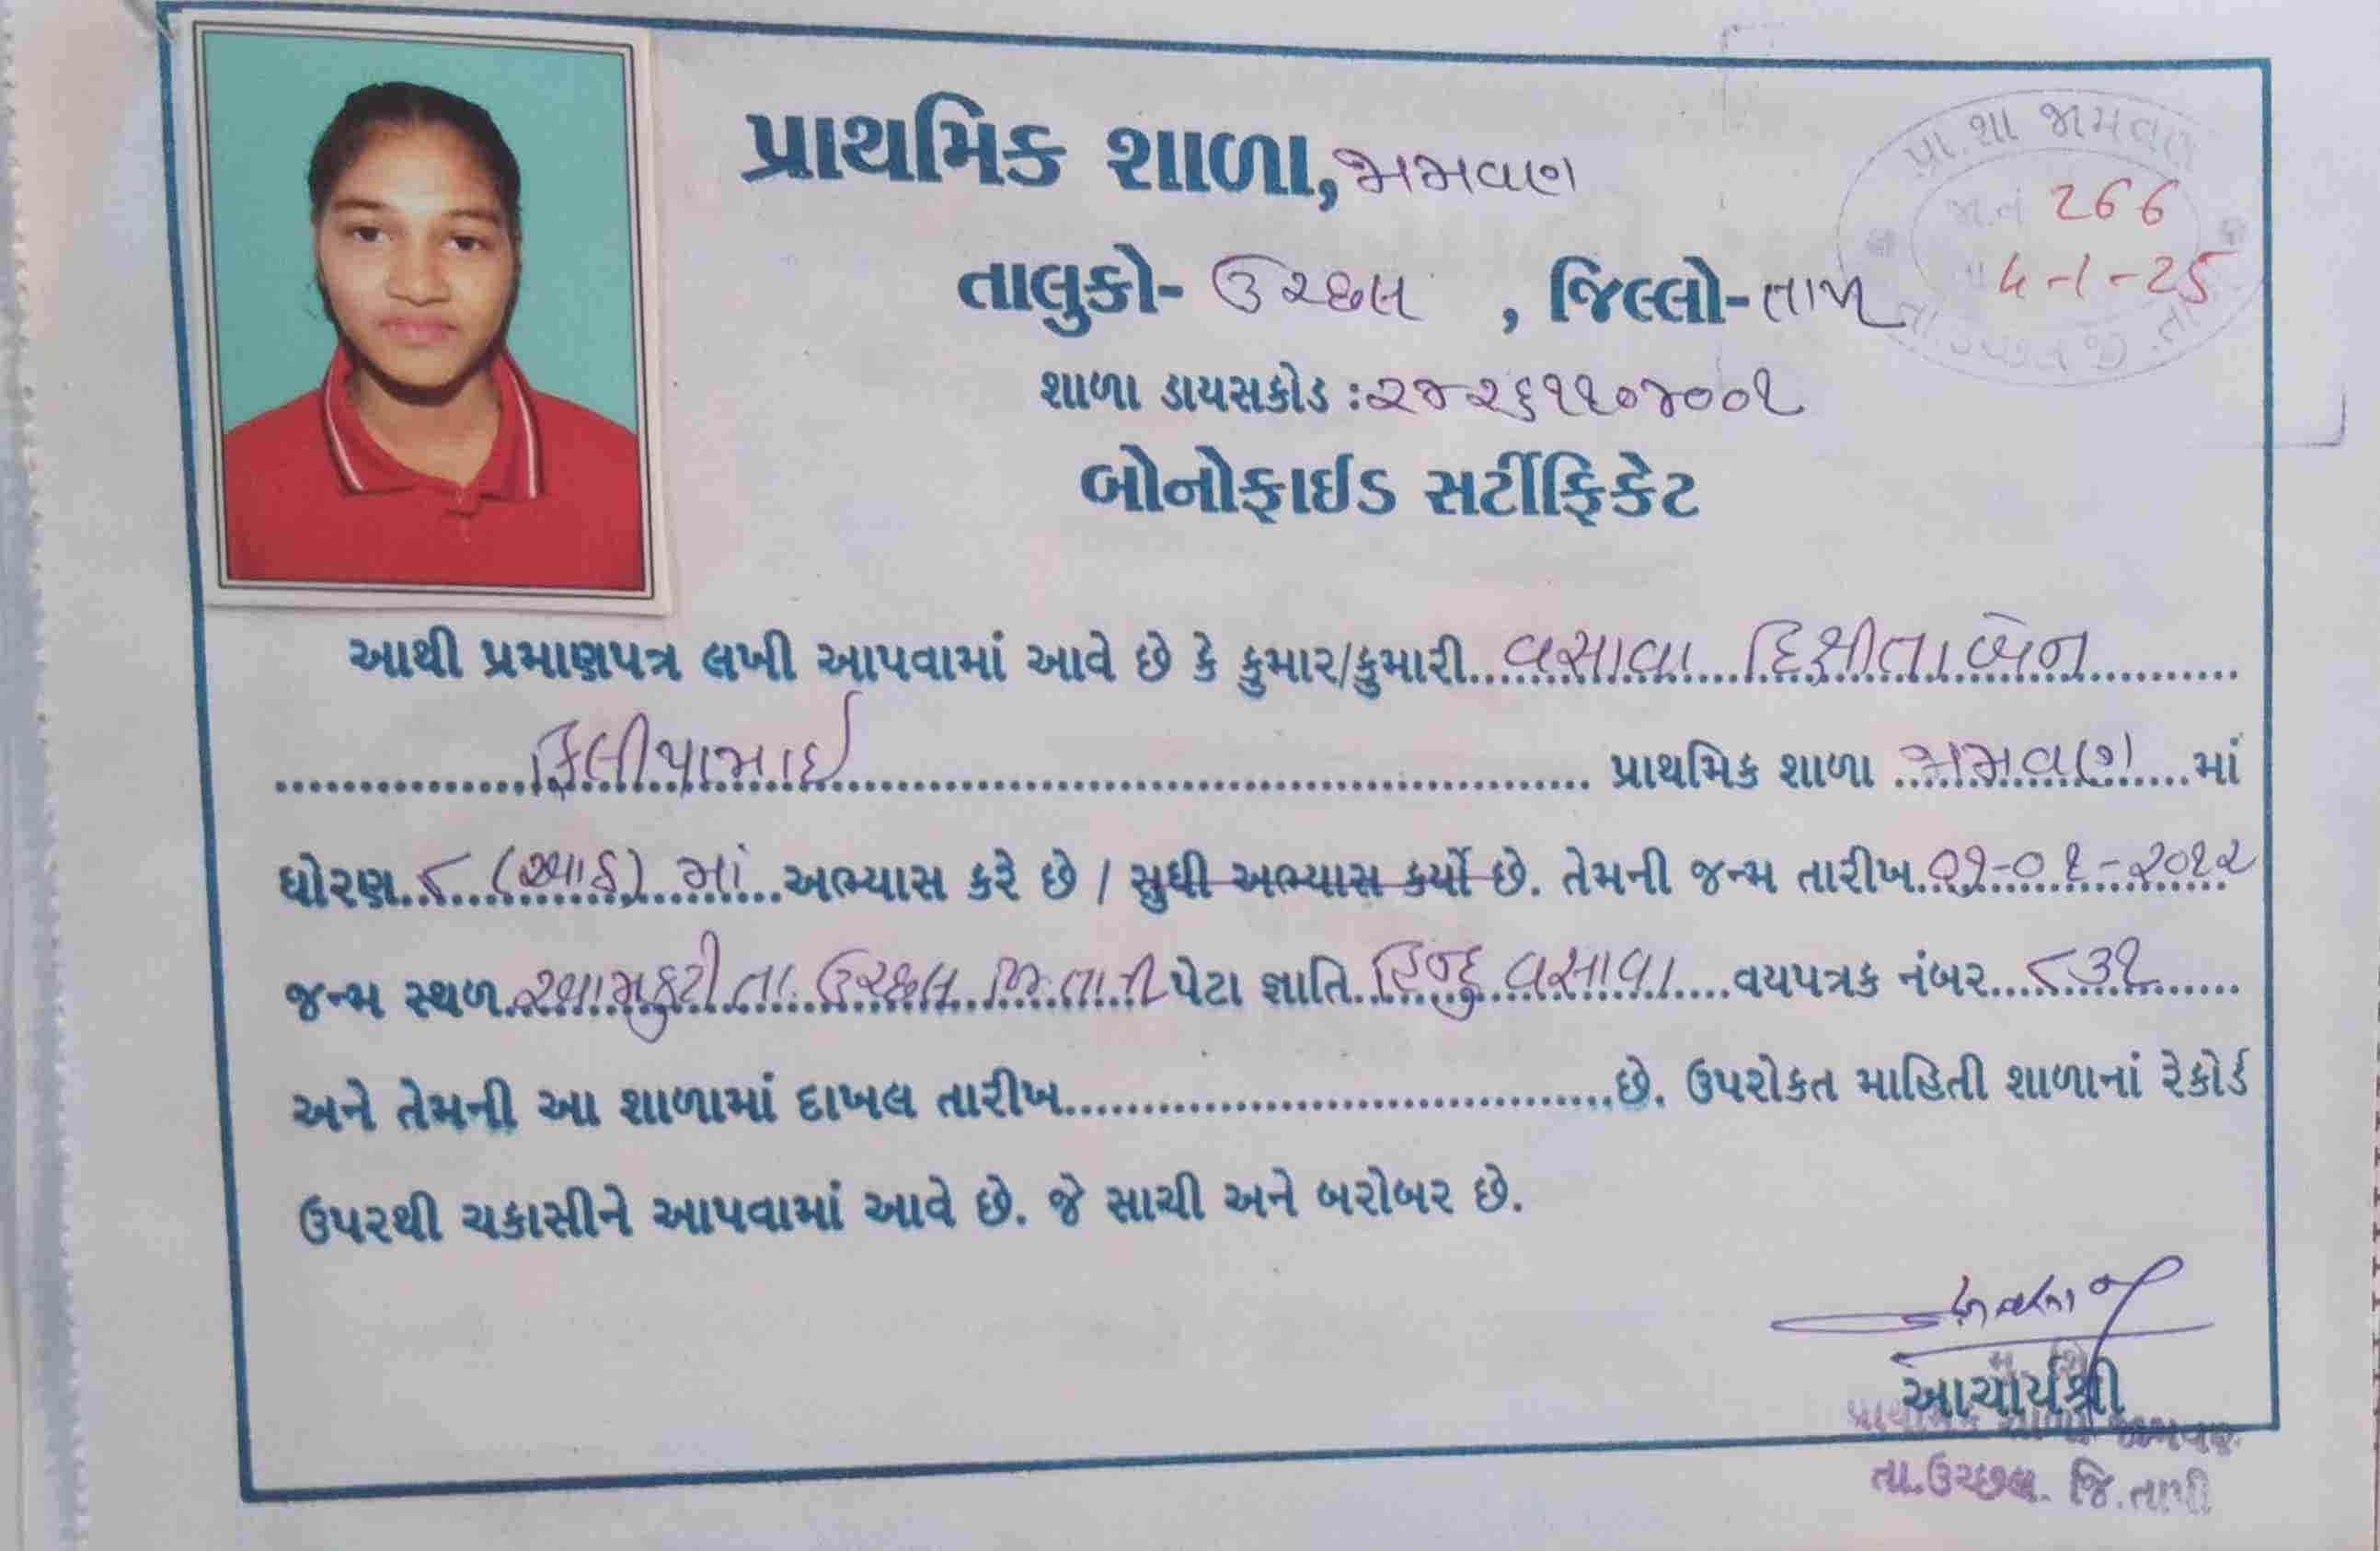 પ્રાથમિક શાળા, જામવણ
પ્રા. શા જામવણ
જા.નં 266
4-1-25
તાલુકો- ઉચ્છલ , જિલ્લો- તાપી
શાળા ડાયસકોડ : ૨૪૨૬૧૧૦૪૦૦૧
બોનોફાઈડ સર્ટીફિકેટ
આથી પ્રમાણપત્ર લખી આપવામાં આવે છે કે કુમાર/કુમારી વસાવા દિક્ષીતાબેન
પ્રાથમિક શાળા જામવણ માં
ધોરણ ૮ (આઠ) માં અભ્યાસ કરે છે / સુધી અભ્યાસ કર્યો છે. તેમની જન્મ તારીખ ૦૧-૦૧-૨૦૧૨
જન્મ સ્થળ તા. ઉચ્છલ જિ. તાપી પેટા જ્ઞાતિ હિન્દુ વસાવા વયપત્રક નંબર ૮૩૧
અને તેમની આ શાળામાં દાખલ તારીખ છે. ઉપરોકત માહિતી શાળાનાં રેકોર્ડ
ઉપરથી ચકાસીને આપવામાં આવે છે. જે સાચી અને બરોબર છે.
આચાર્યશ્રી
પ્રાથમિક શાળા જામવણ
તા.ઉચ્છલ. જિ.તાપી